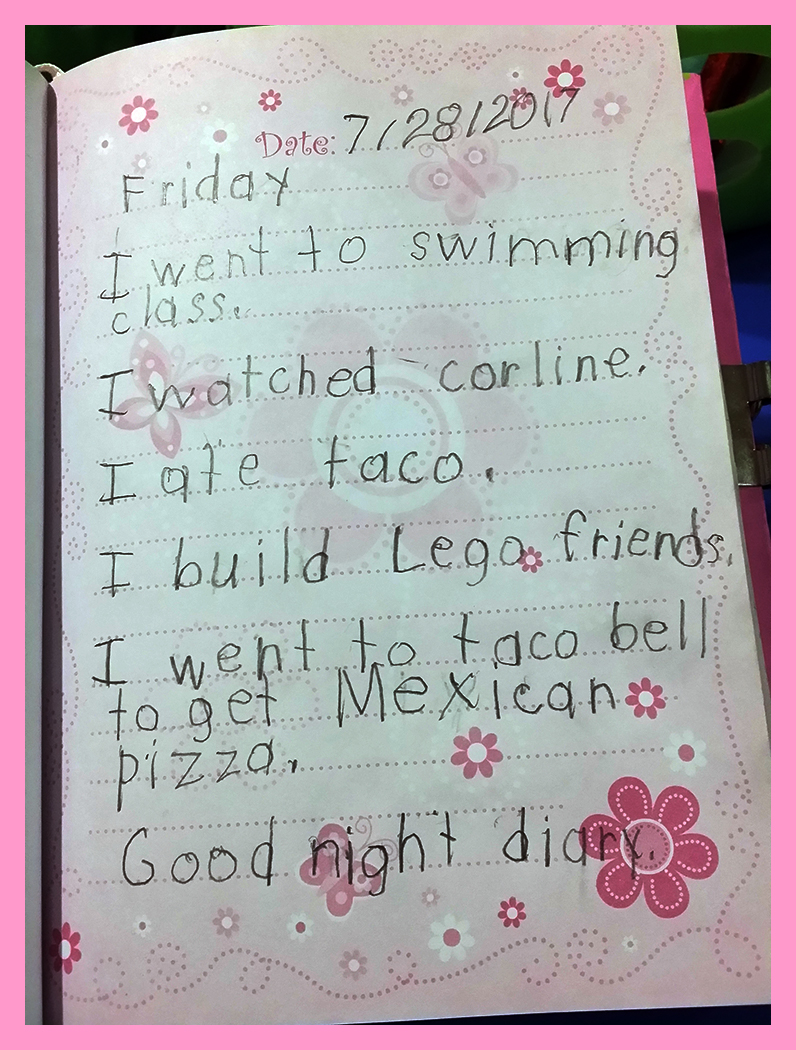 Date: 7/28/2017
Friday
I went to swimming
class.
I watched corline.
I ate taco.
I build Lego friends.
I went to taco bell
to get Mexican
pizza.
Good night diary.